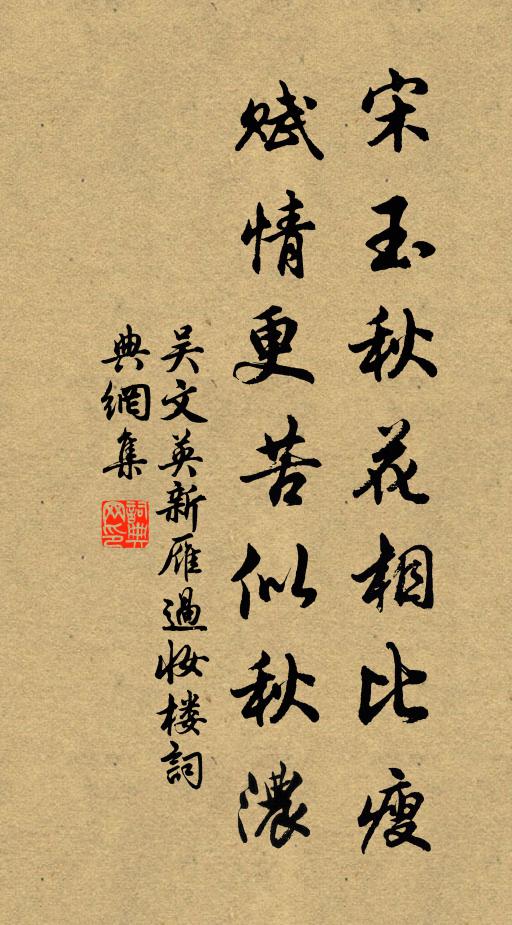 宋玉秋花相比瘦
賦情更苦似秋濃
吴文英新雁過妝楼詞
典網集
詞典網印